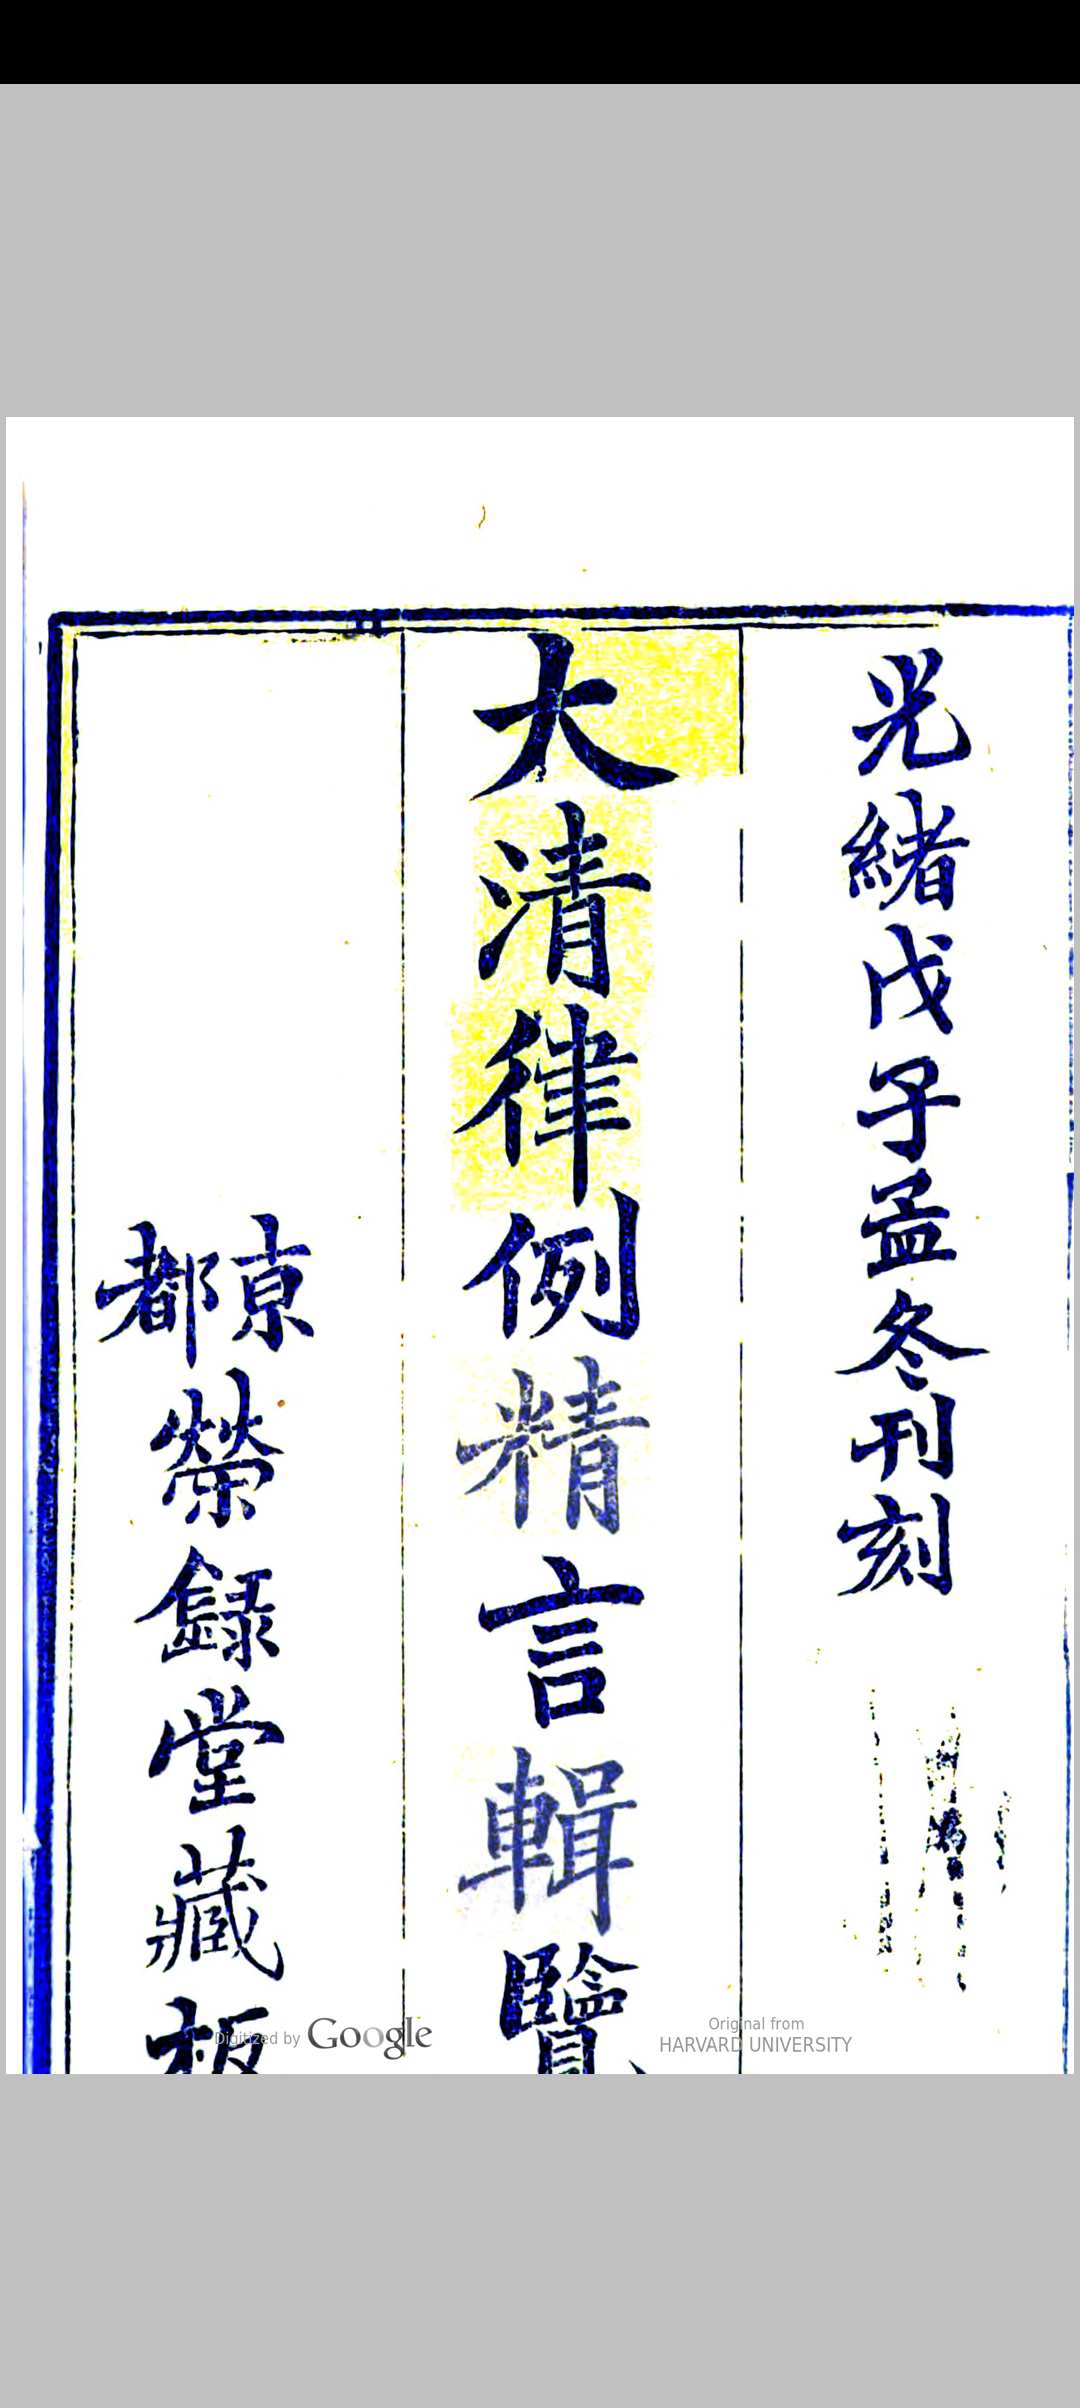 光緒戊子孟冬刊刻
大清律例精言輯覽
京都榮錄堂藏板
Digitized by Google
Original from
HARVARD UNIVERSITY